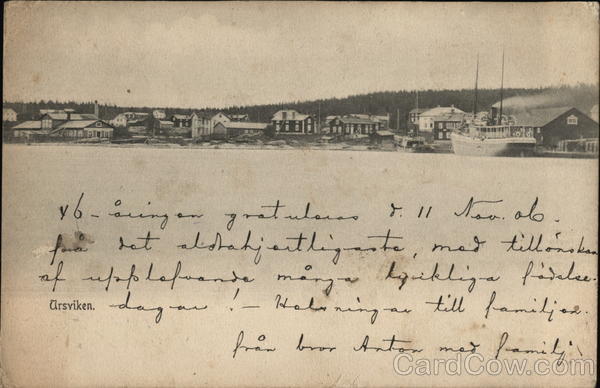 46-åringen gratuleras d. 11 Nov. 06.
på det aldrahjertligaste, med tillönskan
af upplefvande många lyckliga födelse-
Ursviken. dagar! - Helsningar till familjen.
från bror Anton med familj
CardCow.com